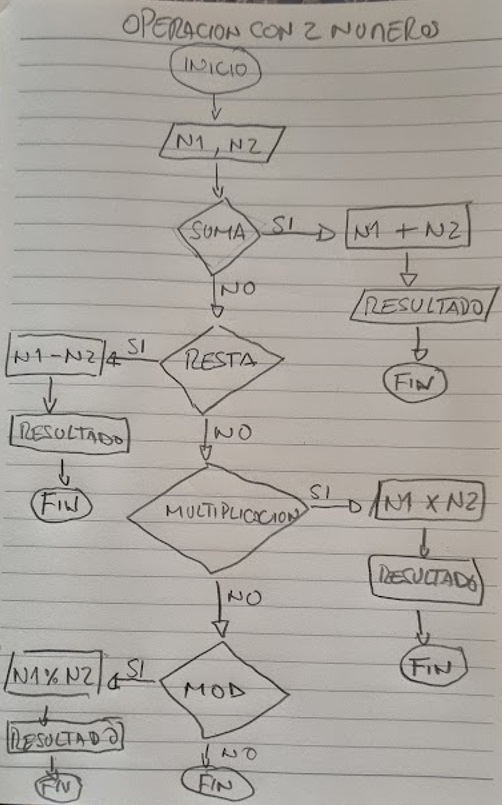 OPERACION CON 2 NUMEROS
INICIO
N1, N2
SUMA
SI
N1 + N2
NO
RESULTADO
FIN
RESTA
SI
N1 - N2
RESULTADO
FIN
NO
MULTIPLICACION
SI
N1 X N2
RESULTADO
FIN
NO
MOD
SI
N1 % N2
RESULTADO
FIN
NO
FIN